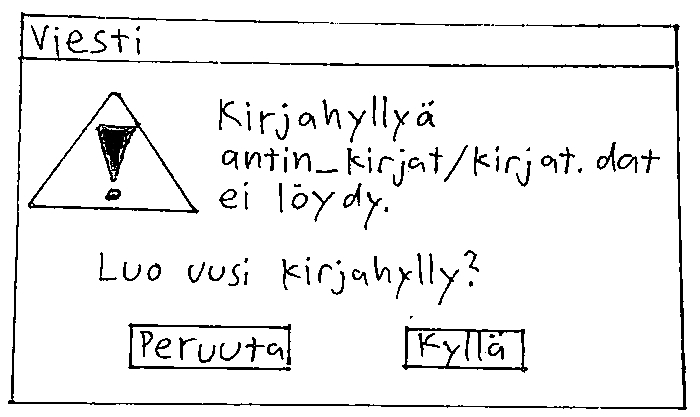 Viesti
Kirjahyllyä
antin_kirjat/kirjat.dat
ei löydy.
Luo uusi kirjahylly?
Peruuta
Kyllä